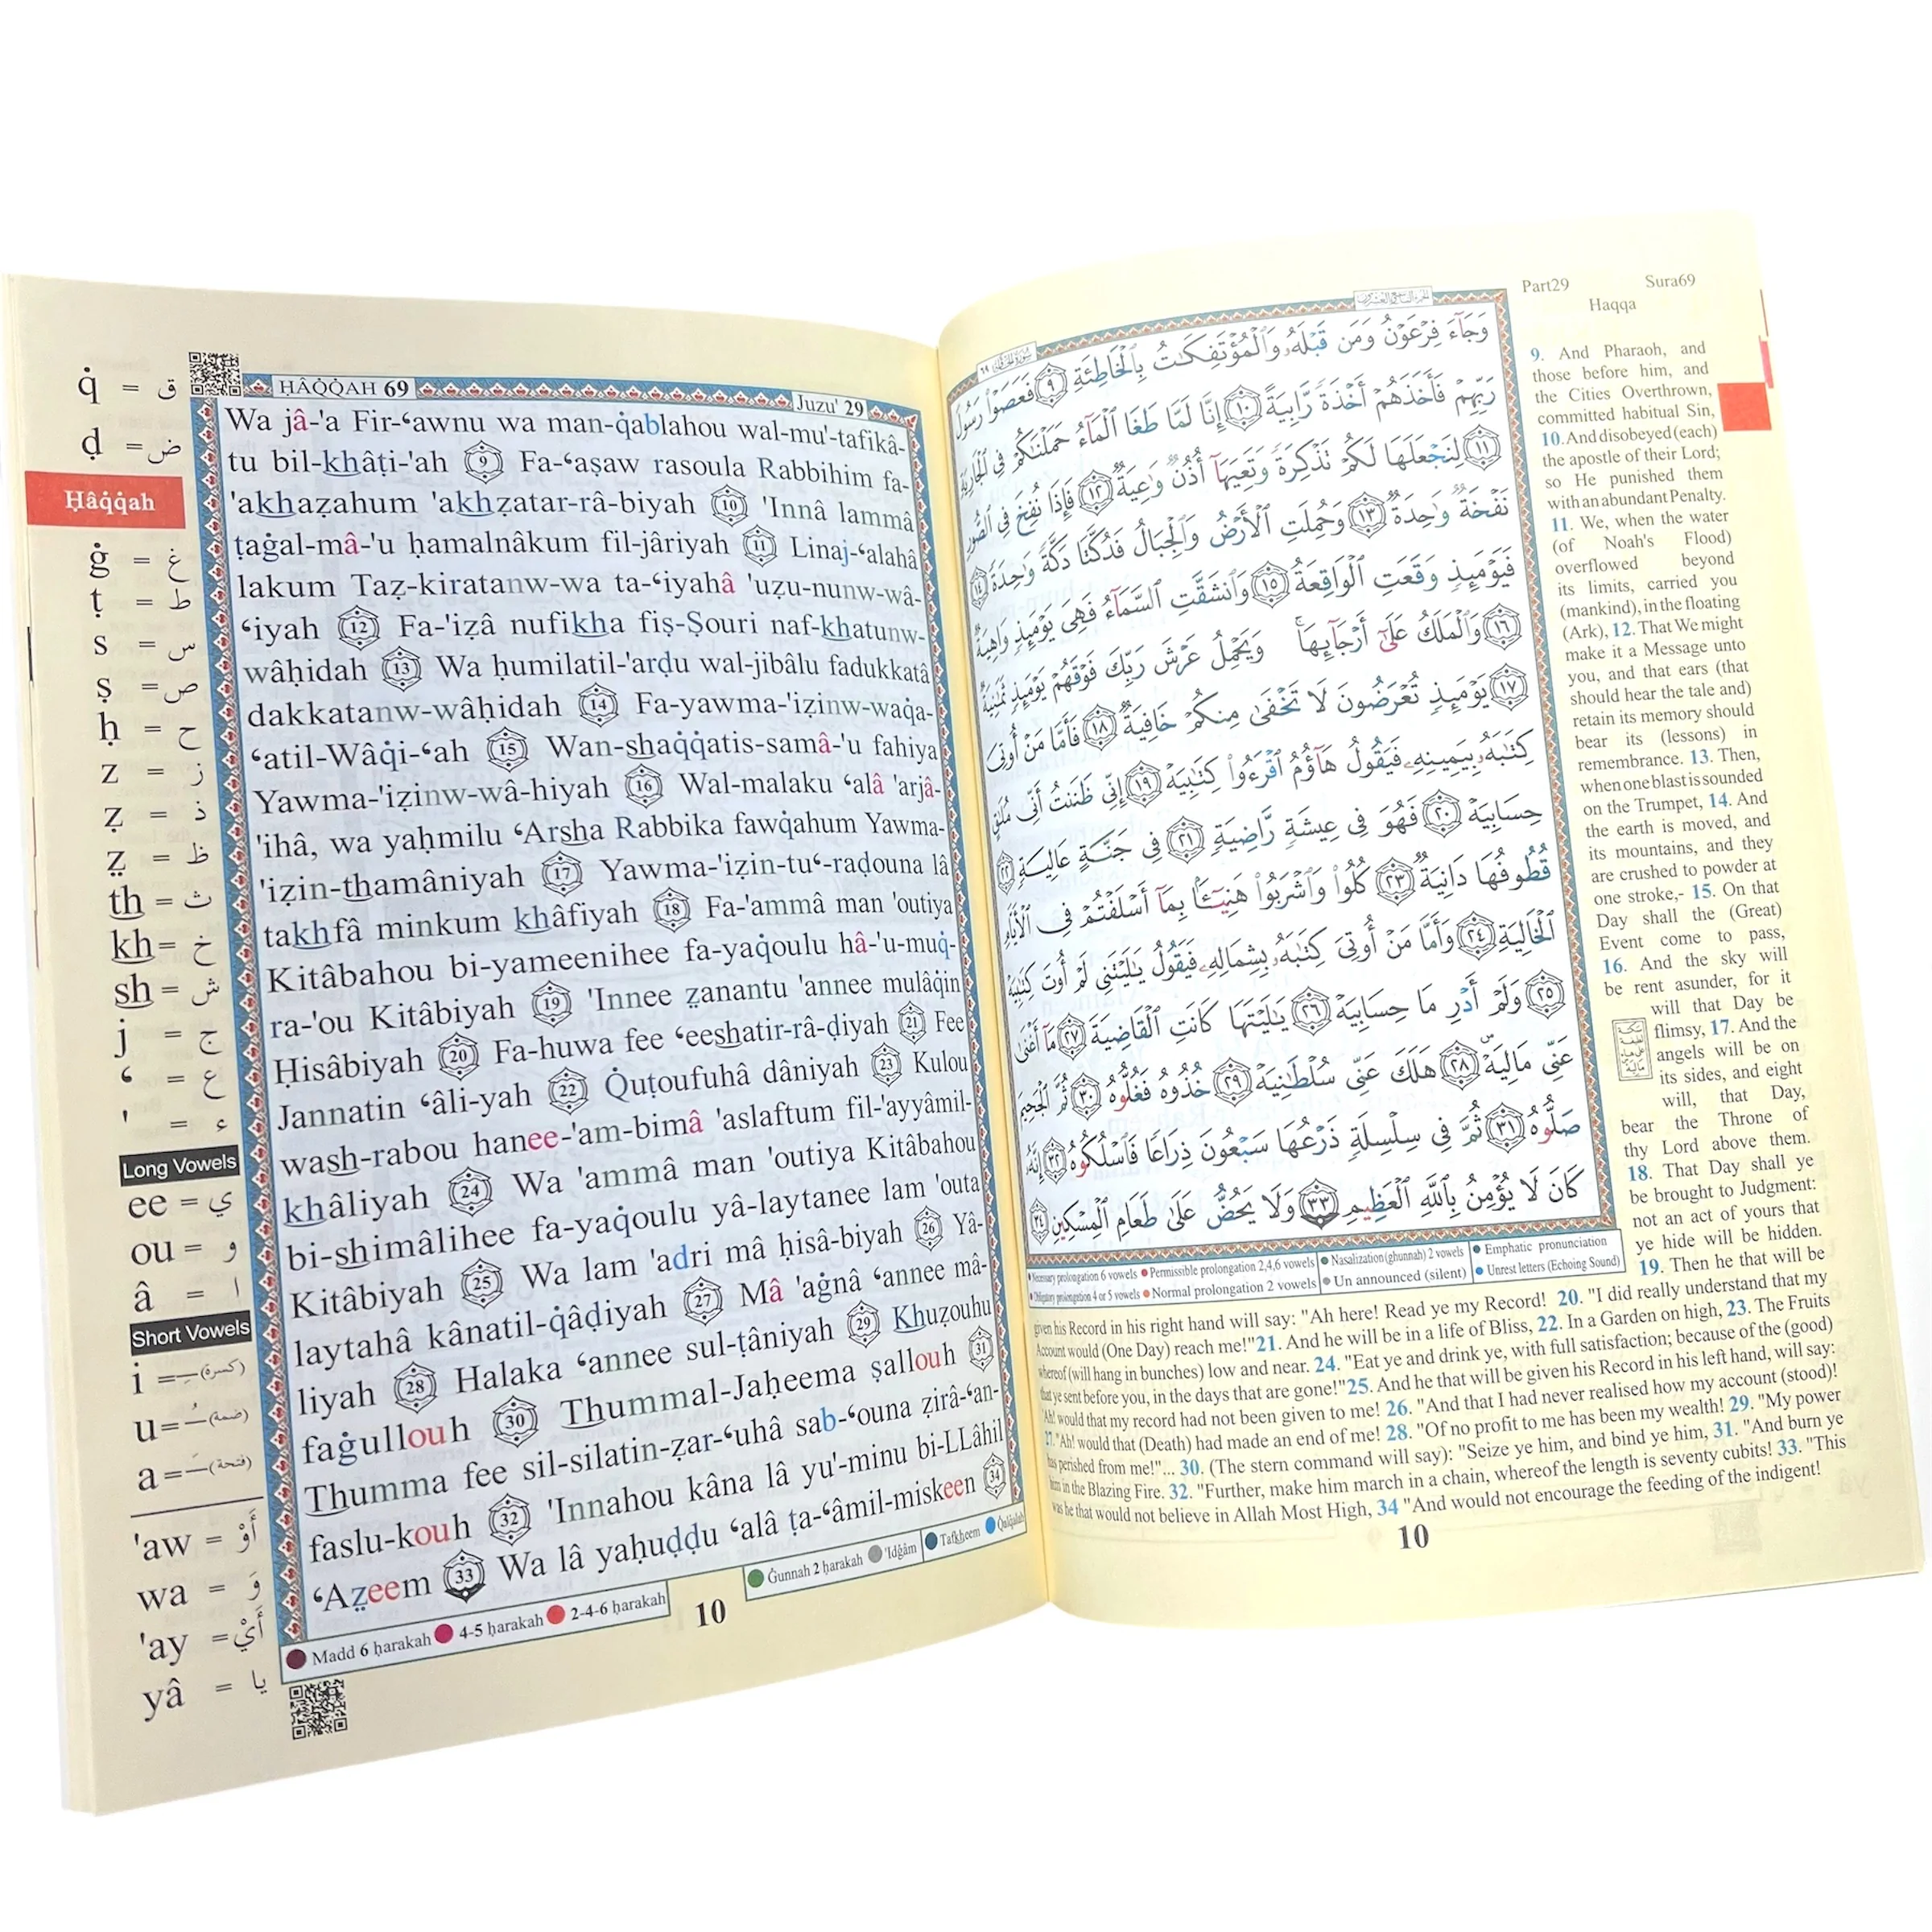 q̇ = ق
ḍ = ض
Ḥâq̇q̇ah
ġ = غ
ṭ = ط
s = س
ṣ = ص
ḥ = ح
z = ز
ẓ = ذ
ẓ̤ = ظ
th = ث
kh = خ
sh = ش
j = ج
‘ = ع
' = ء
Long Vowels
ee = ي
ou = و
â = ا
Short Vowels
i = ـِ (كسرة)
u = ـُ (ضمة)
a = ـَ (فتحة)
'aw = أَوْ
wa = وَ
'ay = أَيْ
yâ = يا
ḤÂQ̇Q̇AH 69
Juzu' 29
Wa jâ-'a Fir-‘awnu wa man-q̇ablahou wal-mu'-tafikâ-
tu bil-khâṭi-'ah 9 Fa-‘aṣaw rasoula Rabbihim fa-
'akhaẓahum 'akhẓatar-râ-biyah 10 'Innâ lammâ
ṭaġal-mâ-'u ḥamalnâkum fil-jâriyah 11 Linaj-‘alahâ
lakum Taẓ-kiratanw-wa ta-‘iyahâ 'uẓu-nunw-wâ-
‘iyah 12 Fa-'iẓâ nufikha fiṣ-Ṣouri naf-khatunw-
wâḥidah 13 Wa ḥumilatil-'arḍu wal-jibâlu fadukkatâ
dakkatanw-wâḥidah 14 Fa-yawma-'iẓinw-waq̇a-
‘atil-Wâq̇i-‘ah 15 Wan-shaq̇q̇atis-samâ-'u fahiya
Yawma-'iẓinw-wâ-hiyah 16 Wal-malaku ‘alâ 'arjâ-
'ihâ, wa yaḥmilu ‘Arsha Rabbika fawq̇ahum Yawma-
'iẓin-thamâniyah 17 Yawma-'iẓin-tu‘-raḍouna lâ
takhfâ minkum khâfiyah 18 Fa-'ammâ man 'outiya
Kitâbahou bi-yameenihee fa-yaq̇oulu hâ-'u-muq̇-
ra-'ou Kitâbiyah 19 'Innee ẓ̤anantu 'annee mulâq̇in
Ḥisâbiyah 20 Fa-huwa fee ‘eeshatir-râ-ḍiyah 21 Fee
Jannatin ‘âli-yah 22 Q̇uṭoufuhâ dâniyah 23 Kulou
wash-rabou hanee-'am-bimâ 'aslaftum fil-'ayyâmil-
khâliyah 24 Wa 'ammâ man 'outiya Kitâbahou
bi-shimâlihee fa-yaq̇oulu yâ-laytanee lam 'outa
Kitâbiyah 25 Wa lam 'adri mâ ḥisâ-biyah 26 Yâ-
laytahâ kânatil-q̇âḍiyah 27 Mâ 'aġnâ ‘annee mâ-
liyah 28 Halaka ‘annee sul-ṭâniyah 29 Khuẓouhu
faġullouh 30 Thummal-Jaḥeema ṣallouh 31
Thumma fee sil-silatin-ẓar-‘uhâ sab-‘ouna ẓirâ-‘an-
faslu-kouh 32 'Innahou kâna lâ yu'-minu bi-LLâhil
‘Aẓ̤eem 33 Wa lâ yaḥuḍḍu ‘alâ ṭa-‘âmil-miskeen 34
Madd 6 ḥarakah 4-5 ḥarakah 2-4-6 ḥarakah
10
Ġunnah 2 ḥarakah 'Idġâm Tafkheem Q̇alq̇alah
الجزء التاسع والعشرون
Part29 Sura69
Haqqa
وَجَآءَ فِرْعَوْنُ وَمَن قَبْلَهُۥ وَٱلْمُؤْتَفِكَـٰتُ بِٱلْخَاطِئَةِ ٩ فَعَصَوْا۟ رَسُولَ
رَبِّهِمْ فَأَخَذَهُمْ أَخْذَةً رَّابِيَةً ١٠ إِنَّا لَمَّا طَغَا ٱلْمَآءُ حَمَلْنَـٰكُمْ فِى ٱلْجَارِيَةِ
١١ لِنَجْعَلَهَا لَكُمْ تَذْكِرَةً وَتَعِيَهَآ أُذُنٌ وَٰعِيَةٌ ١٢ فَإِذَا نُفِخَ فِى ٱلصُّورِ
نَفْخَةٌ وَٰحِدَةٌ ١٣ وَحُمِلَتِ ٱلْأَرْضُ وَٱلْجِبَالُ فَدُكَّتَا دَكَّةً وَٰحِدَةً ١٤
فَيَوْمَئِذٍ وَقَعَتِ ٱلْوَاقِعَةُ ١٥ وَٱنشَقَّتِ ٱلسَّمَآءُ فَهِىَ يَوْمَئِذٍ وَاهِيَةٌ
١٦ وَٱلْمَلَكُ عَلَىٰٓ أَرْجَآئِهَا ۚ وَيَحْمِلُ عَرْشَ رَبِّكَ فَوْقَهُمْ يَوْمَئِذٍ ثَمَـٰنِيَةٌ
١٧ يَوْمَئِذٍ تُعْرَضُونَ لَا تَخْفَىٰ مِنكُمْ خَافِيَةٌ ١٨ فَأَمَّا مَنْ أُوتِىَ
كِتَـٰبَهُۥ بِيَمِينِهِۦ فَيَقُولُ هَآؤُمُ ٱقْرَءُوا۟ كِتَـٰبِيَهْ ١٩ إِنِّى ظَنَنتُ أَنِّى مُلَـٰقٍ
حِسَابِيَهْ ٢٠ فَهُوَ فِى عِيشَةٍ رَّاضِيَةٍ ٢١ فِى جَنَّةٍ عَالِيَةٍ ٢٢
قُطُوفُهَا دَانِيَةٌ ٢٣ كُلُوا۟ وَٱشْرَبُوا۟ هَنِيٓـًٔۢا بِمَآ أَسْلَفْتُمْ فِى ٱلْأَيَّامِ
ٱلْخَالِيَةِ ٢٤ وَأَمَّا مَنْ أُوتِىَ كِتَـٰبَهُۥ بِشِمَالِهِۦ فَيَقُولُ يَـٰلَيْتَنِى لَمْ أُوتَ كِتَـٰبِيَهْ
٢٥ وَلَمْ أَدْرِ مَا حِسَابِيَهْ ٢٦ يَـٰلَيْتَهَا كَانَتِ ٱلْقَاضِيَةَ ٢٧ مَآ أَغْنَىٰ
عَنِّى مَالِيَهْ ۜ ٢٨ هَلَكَ عَنِّى سُلْطَـٰنِيَهْ ٢٩ خُذُوهُ فَغُلُّوهُ ٣٠ ثُمَّ ٱلْجَحِيمَ
صَلُّوهُ ٣١ ثُمَّ فِى سِلْسِلَةٍ ذَرْعُهَا سَبْعُونَ ذِرَاعًا فَٱسْلُكُوهُ ٣٢ إِنَّهُۥ
كَانَ لَا يُؤْمِنُ بِٱللَّهِ ٱلْعَظِيمِ ٣٣ وَلَا يَحُضُّ عَلَىٰ طَعَامِ ٱلْمِسْكِينِ ٣٤
Necessary prolongation 6 vowels Permissible prolongation 2,4,6 vowels Nasalization (ghunnah) 2 vowels Emphatic pronunciation
Obligatory prolongation 4 or 5 vowels Normal prolongation 2 vowels Un announced (silent) Unrest letters (Echoing Sound)
9. And Pharaoh, and
those before him, and
the Cities Overthrown,
committed habitual Sin,
10. And disobeyed (each)
the apostle of their Lord;
so He punished them
with an abundant Penalty.
11. We, when the water
(of Noah's Flood)
overflowed beyond
its limits, carried you
(mankind), in the floating
(Ark), 12. That We might
make it a Message unto
you, and that ears (that
should hear the tale and)
retain its memory should
bear its (lessons) in
remembrance. 13. Then,
when one blast is sounded
on the Trumpet, 14. And
the earth is moved, and
its mountains, and they
are crushed to powder at
one stroke,- 15. On that
Day shall the (Great)
Event come to pass,
16. And the sky will
be rent asunder, for it
will that Day be
flimsy, 17. And the
angels will be on
its sides, and eight
will, that Day,
bear the Throne of
thy Lord above them.
18. That Day shall ye
be brought to Judgment:
not an act of yours that
ye hide will be hidden.
19. Then he that will be
given his Record in his right hand will say: "Ah here! Read ye my Record! 20. "I did really understand that my
Account would (One Day) reach me!"21. And he will be in a life of Bliss, 22. In a Garden on high, 23. The Fruits
whereof (will hang in bunches) low and near. 24. "Eat ye and drink ye, with full satisfaction; because of the (good)
that ye sent before you, in the days that are gone!"25. And he that will be given his Record in his left hand, will say:
"Ah! would that my record had not been given to me! 26. "And that I had never realised how my account (stood)!
27. "Ah! would that (Death) had made an end of me! 28. "Of no profit to me has been my wealth! 29. "My power
has perished from me!"... 30. (The stern command will say): "Seize ye him, and bind ye him, 31. "And burn ye
him in the Blazing Fire. 32. "Further, make him march in a chain, whereof the length is seventy cubits! 33. "This
was he that would not believe in Allah Most High, 34 "And would not encourage the feeding of the indigent!
10